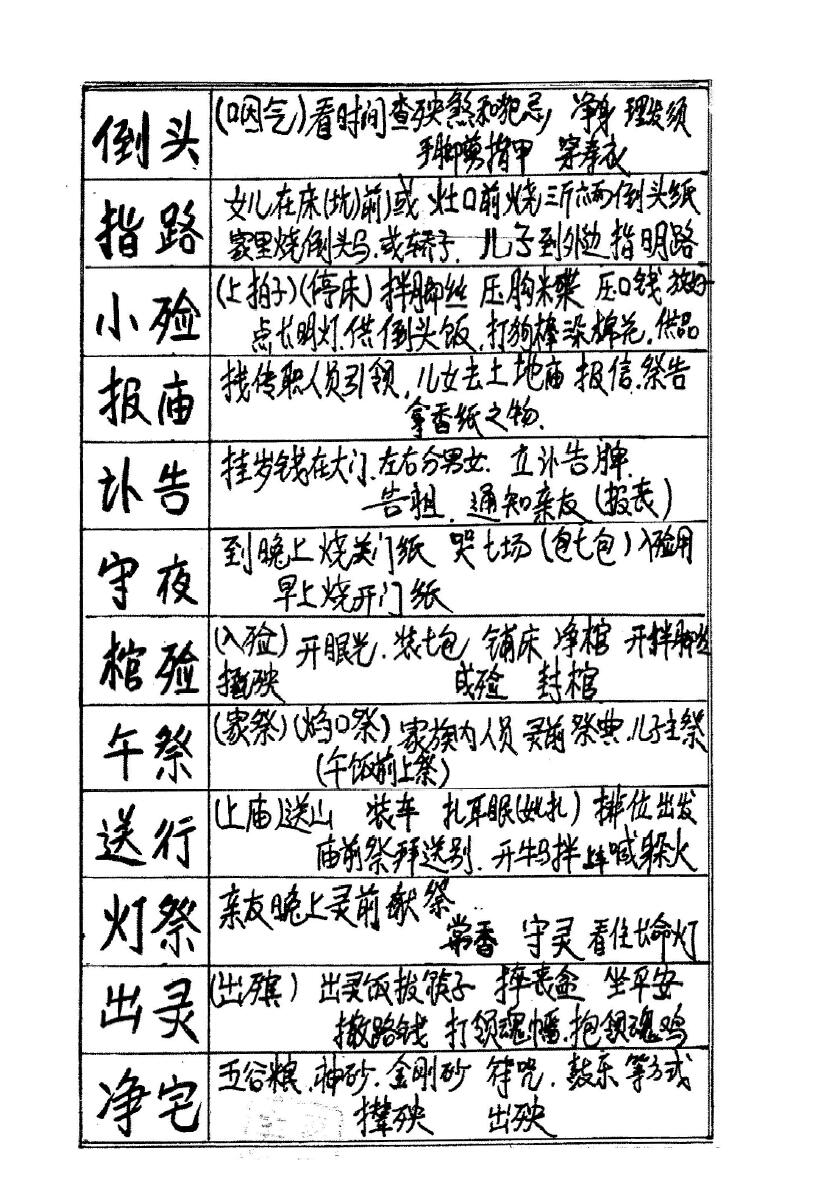 倒头
(咽气)看时间查殃煞和犯忌, 净身 理发须
手脚剪指甲 穿孝衣
指路
女儿在床(坑)前)或 灶口前烧三斤六两倒头纸
家里烧倒头马.或轿子. 儿子到外边 指明路
小殓
(上拍子)(停床) 拌脚丝 压胸米碟 压口钱 放好
点长明灯.供倒头饭,打狗棒染棉花.供品
报庙
找传职人员引领,儿女去土地庙 报信.祭告
拿香纸之物.
讣告
挂岁钱在大门.左右分男女. 立讣告牌.
告祖. 通知亲友(报丧)
守夜
到晚上 烧关门纸 哭七场(包七包)入殓用
早上烧开门纸
棺殓
(入殓) 开眼光.装七包 铺床 净棺 开拌脚丝
殃 成殓 封棺
午祭
(家祭)(焰口祭) 家族内人员 灵前祭典.儿子主祭
(午饭前上祭)
送行
(上庙)送山 装车 扎耳眼(她扎) 排位出发
庙前祭拜送别. 开牛马拌 上车喊躲火
灯祭
亲友晚上灵前献祭
香 守灵 看住长命灯
出灵
(出殡) 出灵饭拔筷子 摔丧盆 坐平安
撒路钱 打领魂幡.抱领魂鸡
净宅
五谷粮.神砂.金刚砂 符咒.鼓乐等方式
撵殃 出殃